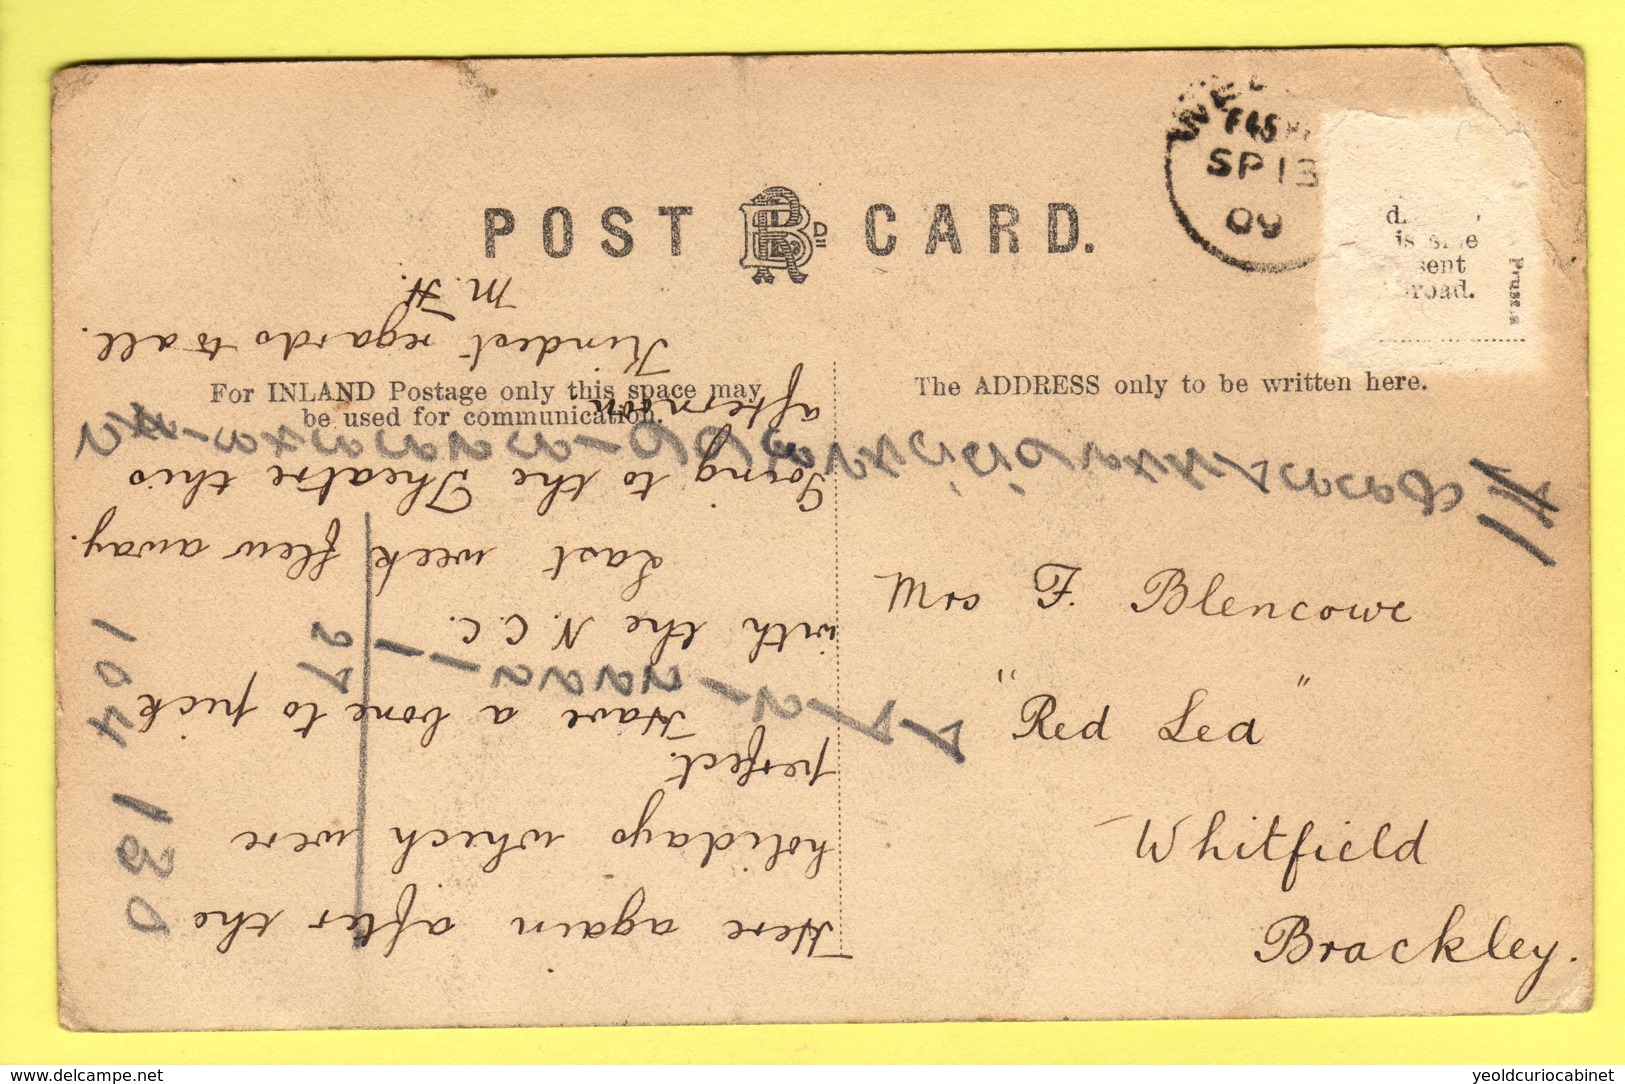 POST CARD.
SP 13
09
sent
Pruss.a
For INLAND Postage only this space may
be used for communication.
The ADDRESS only to be written here.
Here again after the
holidays which were
perfect.
Have a bone to pick
with the N. C. C.
Last week flew away.
Going to the Theatre this
afternoon
Kindest regards to all.
M. H.
Mrs F. Blencowe
"Red Lea"
Whitfield
Brackley.
27
104
130
delcampe.net
yeoldcuriocabinet